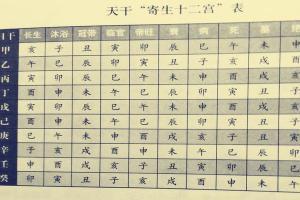 天干“寄生十二宫”表
日干 长生 沐浴 冠带 临官 帝旺 衰 病 死 墓
甲 亥 子 丑 寅 卯 辰 巳 午 未 申
乙 午 巳 辰 卯 寅 丑 子 亥 戌 酉
丙 寅 卯 辰 巳 午 未 申 酉 戌 亥
丁 酉 申 未 午 巳 辰 卯 寅 丑 子
戊 寅 卯 辰 巳 午 未 申 酉 戌 亥
己 酉 申 未 午 巳 辰 卯 寅 丑 子
庚 巳 午 未 申 酉 戌 亥 子 丑 寅
辛 子 亥 戌 酉 申 未 午 巳 辰 卯
壬 申 酉 戌 亥 子 丑 寅 卯 辰 巳
癸 卯 寅 丑 子 亥 戌 酉 申 未 午